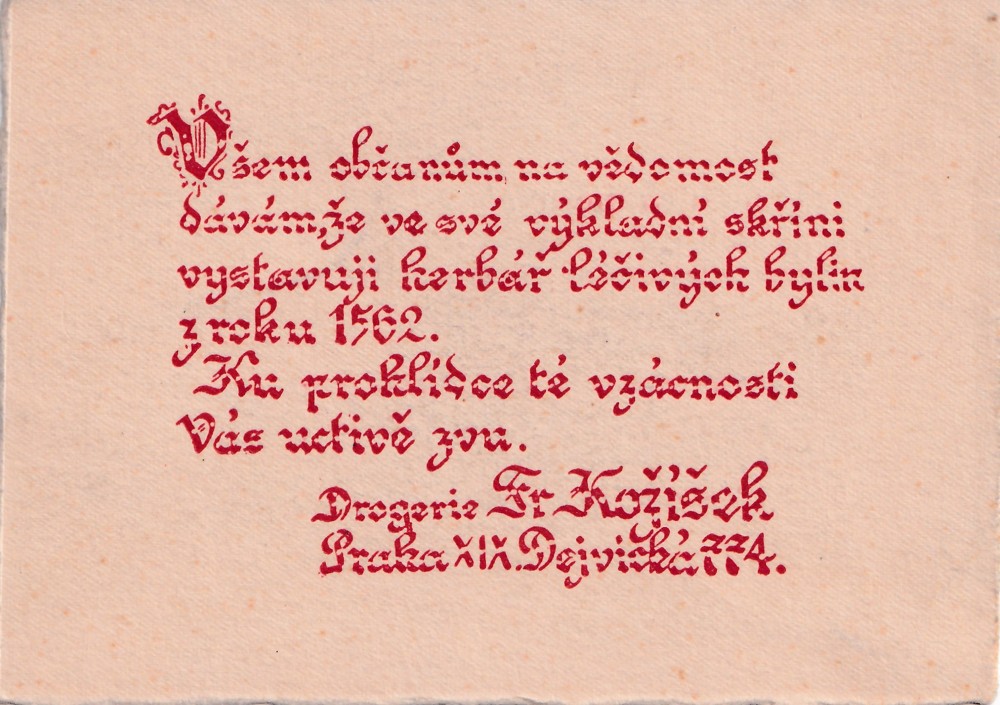 Všem občanům na vědomost
dávám, že ve své výkladní skříni
vystavuji herbář léčivých bylin
z roku 1562.
Ku proklídce té vzácnosti
Vás uctivě zvu.
Drogerie Fr Kožíšek
Praha XIX. Dejvická 774.